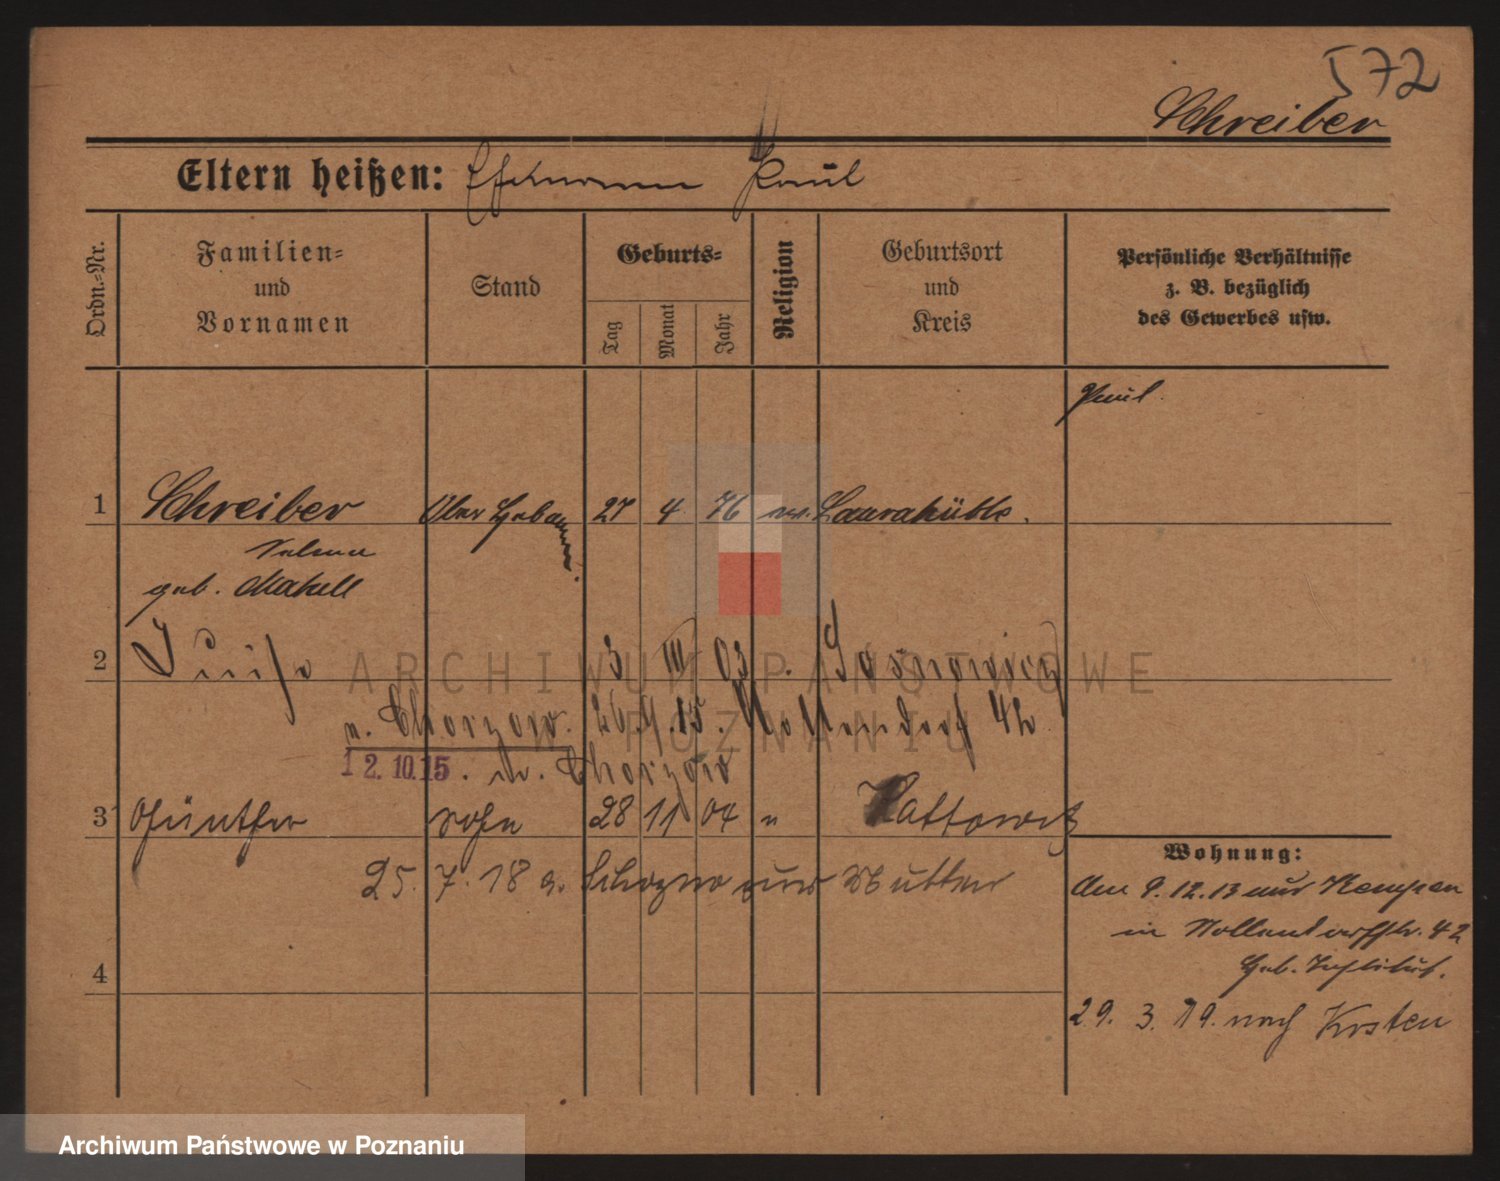 572
Schreiber
Eltern heißen: Ehemann Paul
Ordn.-Nr.
Familien-
und
Vornamen
Stand
Geburts-
Tag
Monat
Jahr
Religion
Geburtsort
und
Kreis
Persönliche Verhältnisse
z. B. bezüglich
des Gewerbes usw.
Paul.
1 Schreiber Ober Hebamme. 27 4 76 ev. Laurahütte.
Selma
geb.
2 Luise 3 III 03 Sosnowicz
n. Chorzow. 26.9.15. Nollendorf 42
12.10.15. v. Chorzow
3 Günther Sohn 28 11 04 " Kattowitz
25. 7. 18 zur Mutter
4
Wohnung:
Am 9.12.13 aus Kempen
in Nollendorffstr. 42
Geb. Institut.
29. 3. 19. nach Kosten
ARCHIWUM PAŃSTWOWE
W POZNANIU
Archiwum Państwowe w Poznaniu